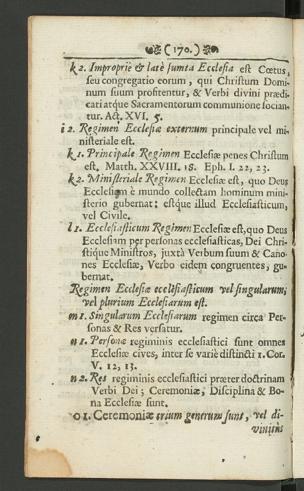 (170.)
k 2. Impropriè & latè sumta Ecclesia est Cœtus,
seu congregatio eorum, qui Christum Domi-
num suum profitentur, & Verbi divini prædi-
cati atque Sacramentorum communione socian-
tur. Act. XVI. 5.
i 2. Regimen Ecclesiæ externum principale vel mi-
nisteriale est.
k 1. Principale Regimen Ecclesiæ penes Christum
est. Matth. XXVIII. 18. Eph. I. 22, 23.
k 2. Ministeriale Regimen Ecclesiæ est, quo Deus
Ecclesiam è mundo collectam hominum mini-
sterio gubernat; estque illud Ecclesiasticum,
vel Civile.
l 1. Ecclesiasticum Regimen Ecclesiæ est, quo Deus
Ecclesiam per personas ecclesiasticas, Dei Chri-
stique Ministros, juxtà Verbum suum & Cano-
nes Ecclesiæ, Verbo eidem congruentes, gu-
bernat.
Regimen Ecclesiæ ecclesiasticum vel singularum,
vel plurium Ecclesiarum est.
m 1. Singularum Ecclesiarum regimen circa Per-
sonas & Res versatur.
n 1. Personæ regiminis ecclesiastici sunt omnes
Ecclesiæ cives, inter se variè distincti 1. Cor.
V. 12, 13.
n 2. Res regiminis ecclesiastici præter doctrinam
Verbi Dei; Ceremoniæ, Disciplina & Bo-
na Ecclesiæ sunt.
o 1. Ceremoniæ trium generum sunt, vel di-
vinitus